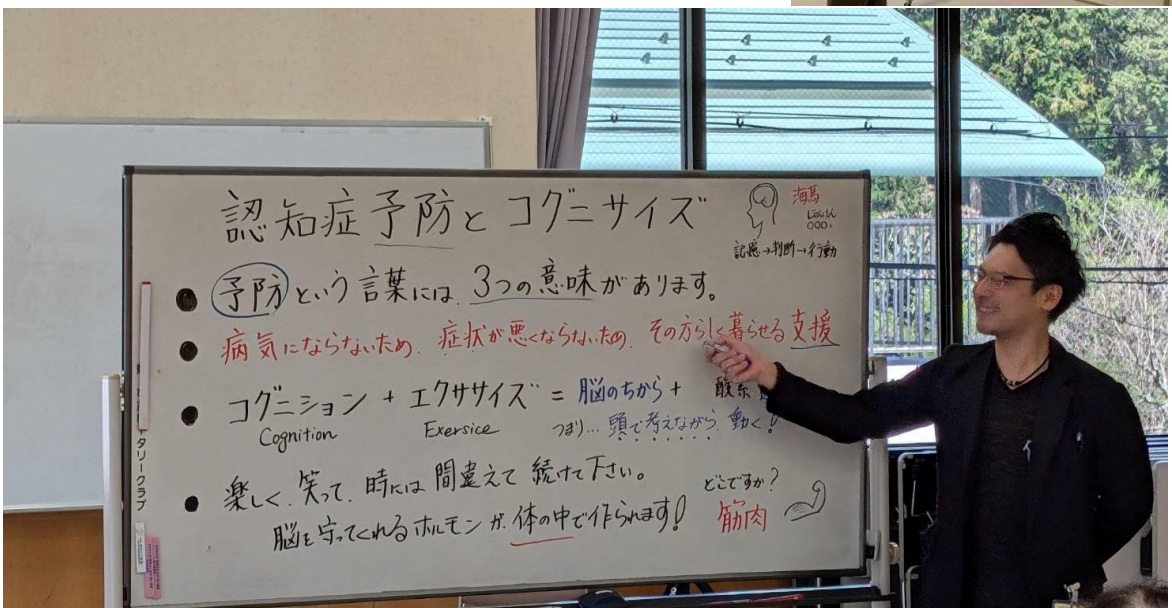 認知症予防とコグニサイズ
海馬
記憶→判断→行動
● 予防という言葉には、3つの意味があります。
● 病気にならないため、症状が悪くならないため、その方らしく暮らせる支援
● コグニション + エクササイズ = 脳のちから + 酸素
Cognition Exersice つまり…頭で考えながら、動く!
● 楽しく、笑って、時には間違えて続けて下さい。
脳を守ってくれるホルモンが、体の中で作られます!
どこですか?
筋肉
タリークラブ